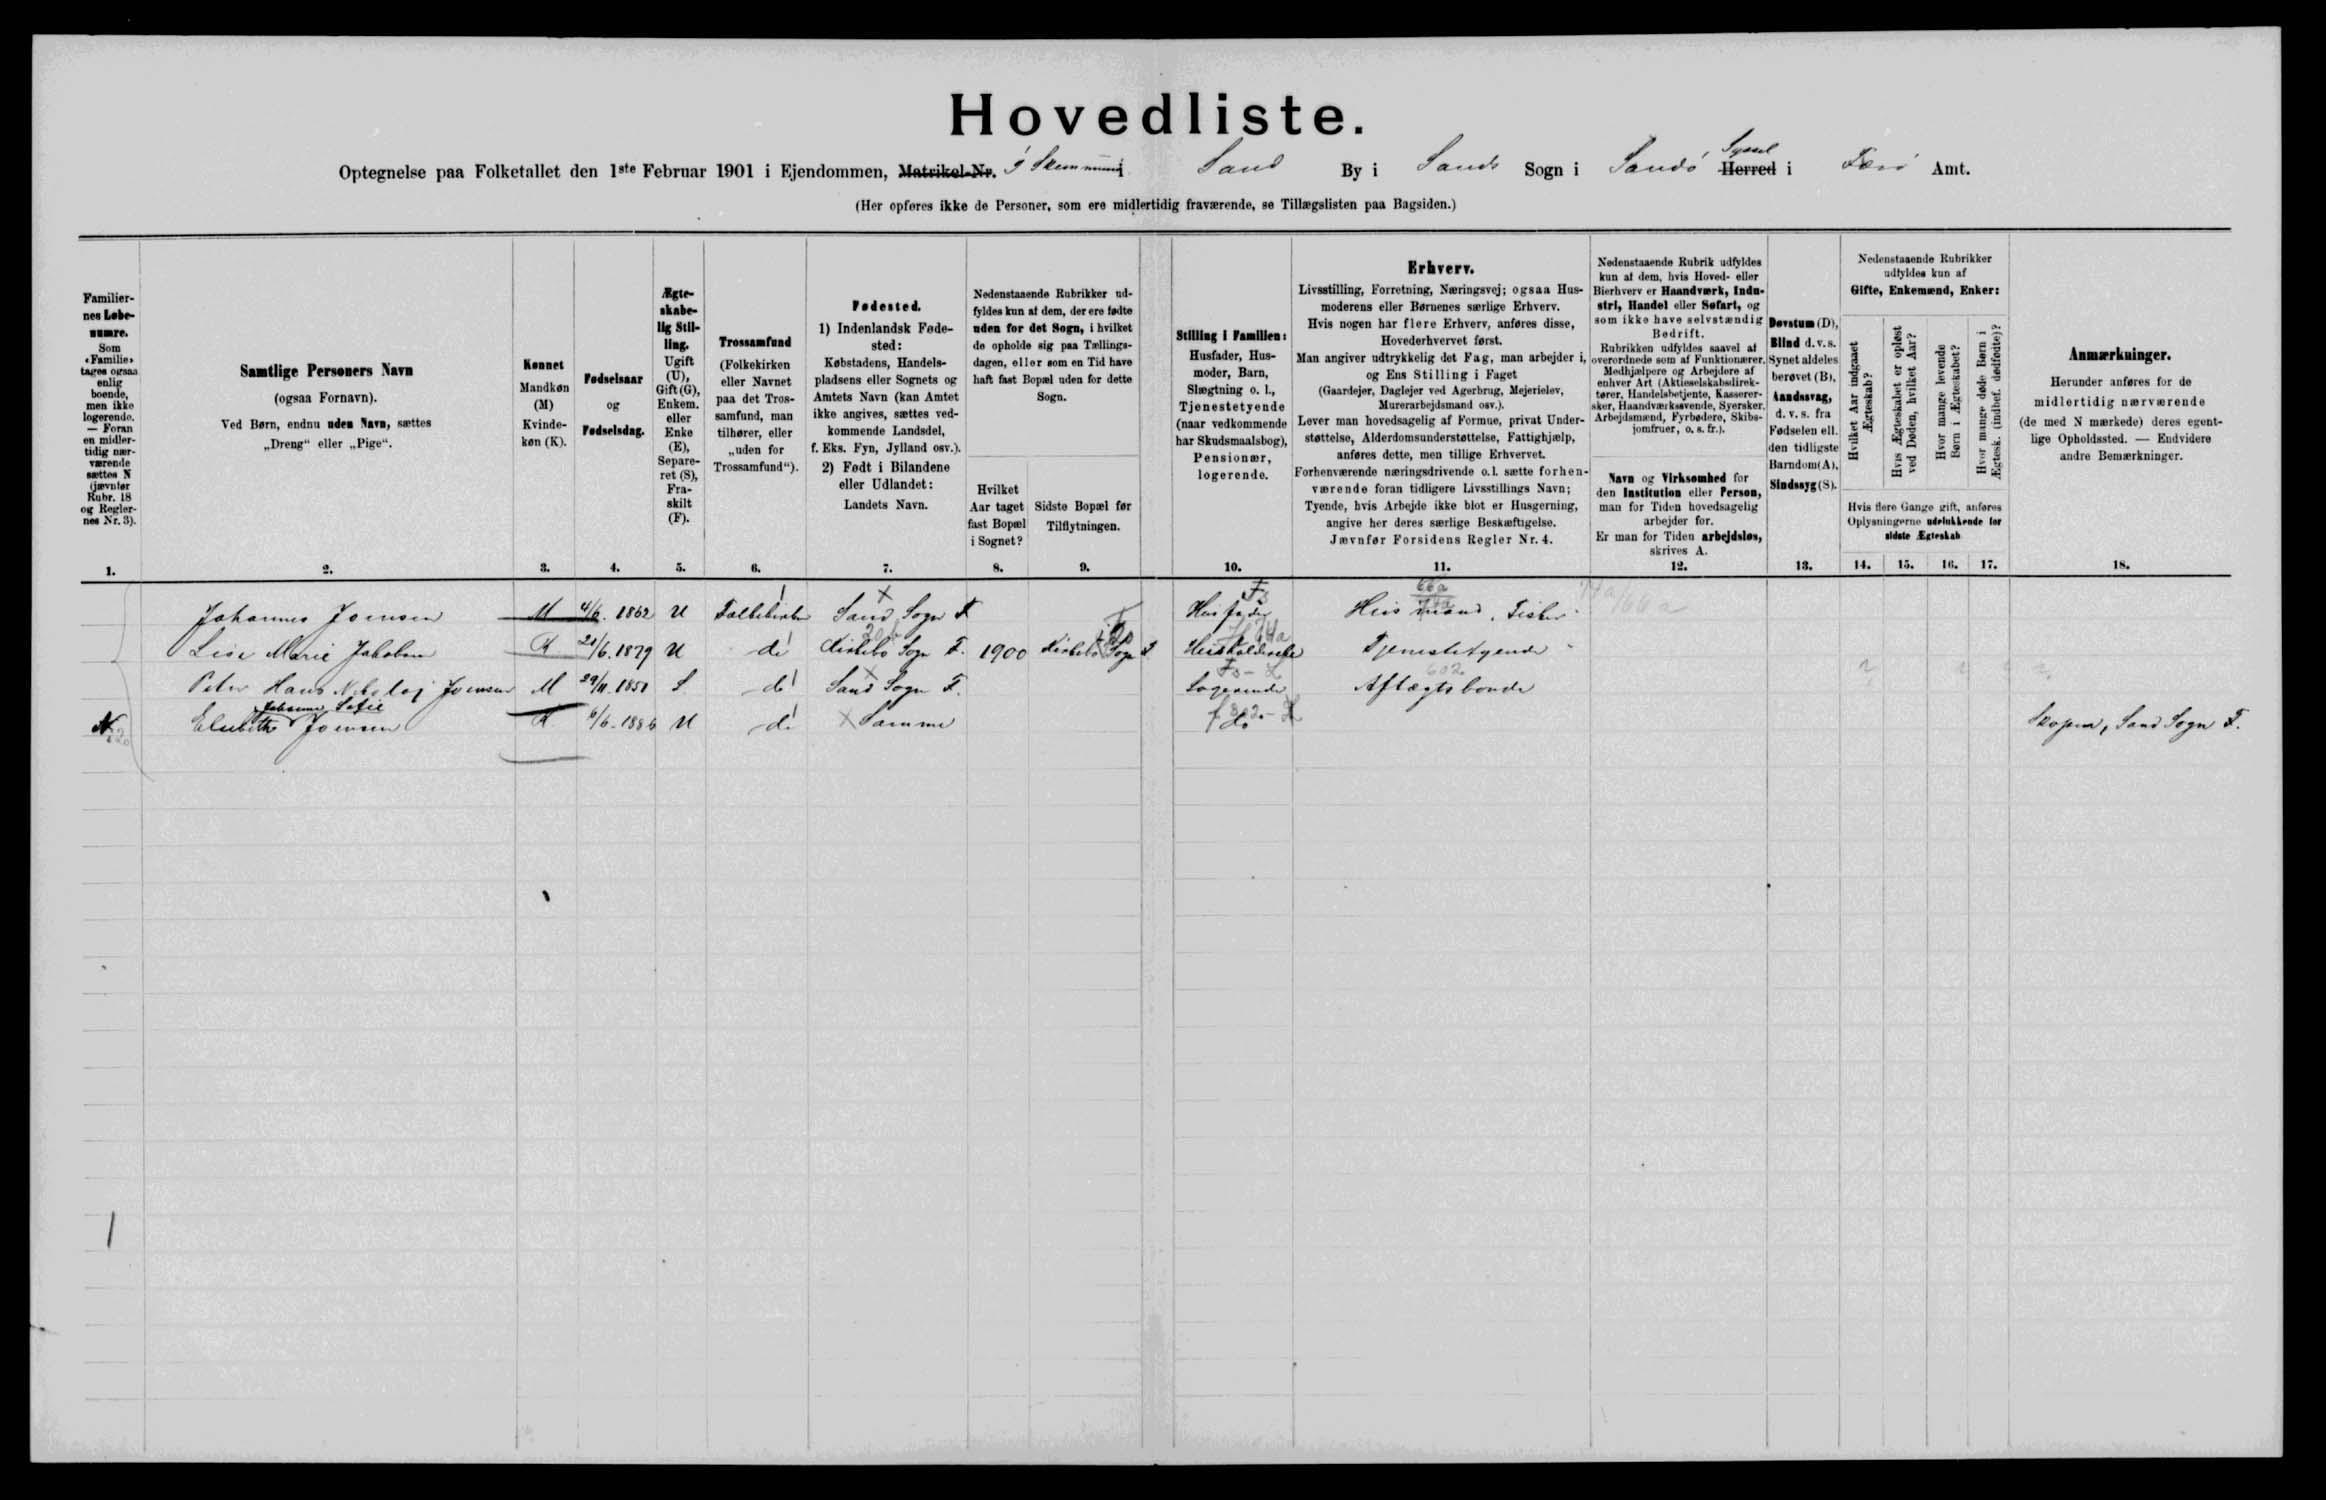 Hovedliste.
Optegnelse paa Folketallet den 1ste Februar 1901 i Ejendommen, Matrikel-Nr. i Sand By i Sands Sogn i Sandø Syssel Herred i Færø Amt.
(Her opføres ikke de Personer, som ere midlertidig fraværende, se Tillægslisten paa Bagsiden.)
Familier-
nes Løbe-
numre.
Som
«Familie»
tages ogsaa
enlig
boende,
men ikke
logerende.
— Foran
en midler-
tidig nær-
værende
sættes N
(jævnfør
Rubr. 18
og Regler-
nes Nr. 3).
1.
Samtlige Personers Navn
(ogsaa Fornavn).
Ved Børn, endnu uden Navn, sættes
„Dreng“ eller „Pige“.
2.
Kønnet
Mandkøn
(M)
Kvinde-
køn (K).
3.
Fødselsaar
og
Fødselsdag.
4.
Ægte-
skabe-
lig Stil-
ling.
Ugift
(U),
Gift (G),
Enkem.
eller
Enke
(E),
Separe-
ret (S),
Fra-
skilt
(F).
5.
Trossamfund
(Folkekirken
eller Navnet
paa det Tros-
samfund, man
tilhører, eller
„uden for
Trossamfund“).
6.
Fødested.
1) Indenlandsk Føde-
sted:
Købstadens, Handels-
pladsens eller Sognets og
Amtets Navn (kan Amtet
ikke angives, sættes ved-
kommende Landsdel,
f. Eks. Fyn, Jylland osv.).
2) Født i Bilandene
eller Udlandet:
Landets Navn.
7.
Nedenstaaende Rubrikker ud-
fyldes kun af dem, der ere fødte
uden for det Sogn, i hvilket
de opholde sig paa Tællings-
dagen, eller som en Tid have
haft fast Bopæl uden for dette
Sogn.
Hvilket
Aar taget
fast Bopæl
i Sognet?
8.
Sidste Bopæl før
Tilflytningen.
9.
Stilling i Familien:
Husfader, Hus-
moder, Barn,
Slægtning o. l.,
Tjenestetyende
(naar vedkommende
har Skudsmaalsbog),
Pensionær,
logerende.
10.
Erhverv.
Livsstilling, Forretning, Næringsvej; ogsaa Hus-
moderens eller Børnenes særlige Erhverv.
Hvis nogen har flere Erhverv, anføres disse,
Hovederhvervet først.
Man angiver udtrykkelig det Fag, man arbejder i,
og Ens Stilling i Faget
(Gaardejer, Daglejer ved Agerbrug, Mejerielev,
Murerarbejdsmand osv.).
Lever man hovedsagelig af Formue, privat Under-
støttelse, Alderdomsunderstøttelse, Fattighjælp,
anføres dette, men tillige Erhvervet.
Forhenværende næringsdrivende o.l. sætte forhen-
værende foran tidligere Livsstillings Navn;
Tyende, hvis Arbejde ikke blot er Husgerning,
angive her deres særlige Beskæftigelse.
Jævnfør Forsidens Regler Nr. 4.
11.
Nedenstaaende Rubrik udfyldes
kun af dem, hvis Hoved- eller
Bierhverv er Haandværk, Indu-
stri, Handel eller Søfart, og
som ikke have selvstændig
Bedrift.
Rubrikken udfyldes saavel af
overordnede som af Funktionærer,
Medhjælpere og Arbejdere af
enhver Art (Aktieselskabsdirek-
tører, Handelsbetjente, Kasserer-
sker, Haandværkssvende, Syersker,
Arbejdsmænd, Fyrbødere, Skibs-
jomfruer, o. s. fr.).
Navn og Virksomhed for
den Institution eller Person,
man for Tiden hovedsagelig
arbejder for.
Er man for Tiden arbejdsløs,
skrives A.
12.
Døvstum (D),
Blind d. v. s.
Synet aldeles
berøvet (B),
Aandssvag,
d. v. s. fra
Fødselen ell.
den tidligste
Barndom (A),
Sindssyg (S).
13.
Nedenstaaende Rubrikker
udfyldes kun af
Gifte, Enkemænd, Enker:
Hvilket Aar indgaaet
Ægteskab?
Hvis Ægteskabet er opløst
ved Døden, hvilket Aar?
Hvor mange levende
Børn i Ægteskabet?
Hvor mange døde Børn i
Ægtesk. (indbef. dødfødte)?
Hvis flere Gange gift, anføres
Oplysningerne udelukkende for
sidste Ægteskab
14. 15. 16. 17.
Anmærkninger.
Herunder anføres for de
midlertidig nærværende
(de med N mærkede) deres egent-
lige Opholdssted. — Endvidere
andre Bemærkninger.
18.
Johannes Joensen M 4/6. 1862 U Folkekirken Sand Sogn F. Husfader Husmand, Fisker
Lise Marie Jakobsen K 21/6. 1879 U do Kirkebø Sogn F. 1900 Kirkebø Sogn F. Husholderske Tjenestetyende
Peter Hans Nikolaj Joensen M 29/11. 1851 S. do Sand Sogn F. Logerende Aftægtsbonde
Johanne Sofie
N Elsebeth Joensen K 6/6. 1886 U do Samme do Skopen, Sand Sogn F.